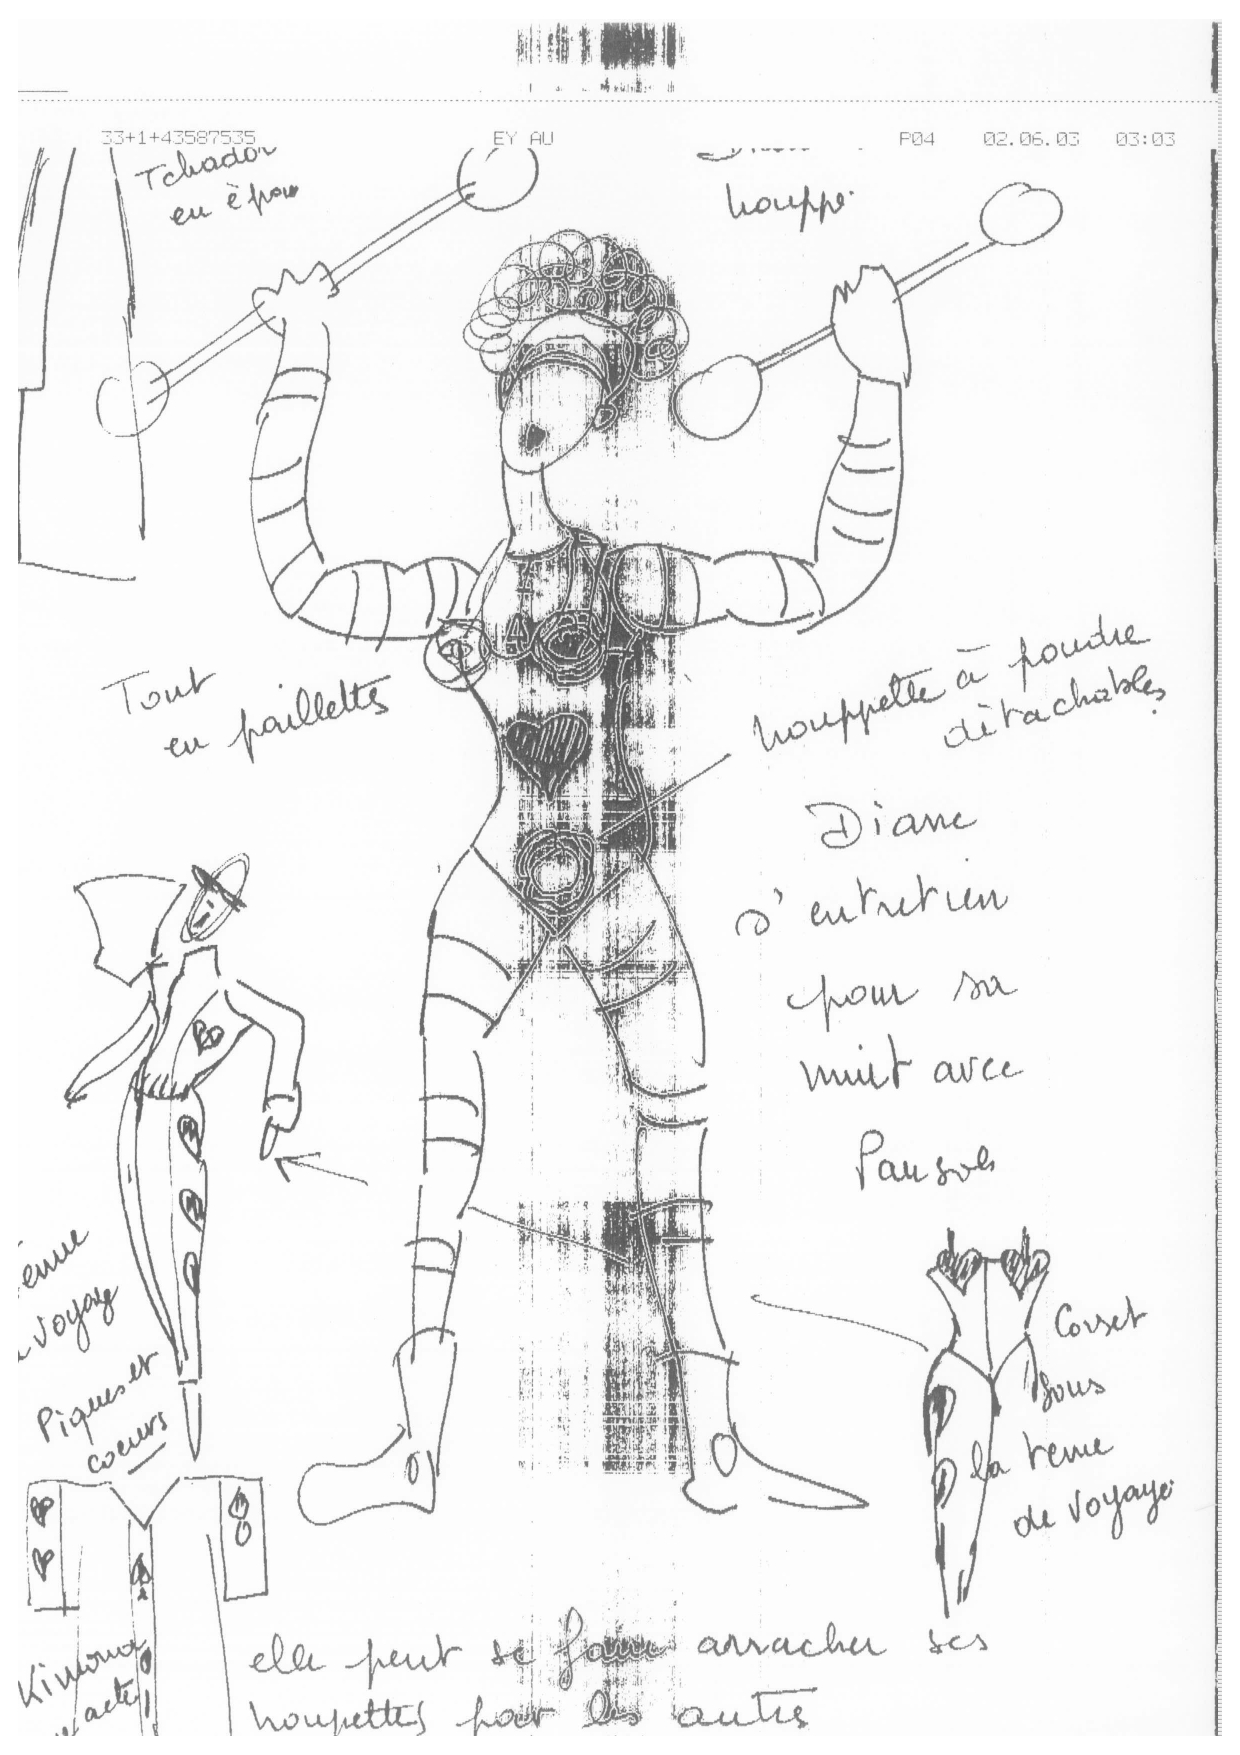 33+1+43587535 EY AU P04 02.06.03 03:03
Tchador
en épon
houppé.
Tout
en paillettes
houppette à poudre
détachables
Diane
s'entretien
pour sa
nuit avec
Pausole
voyage
Piques et
coeurs
Corset
sous
la tenue
de voyage.
Kimono
acte
elle peut se faire arracher ses
houpettes par les autres